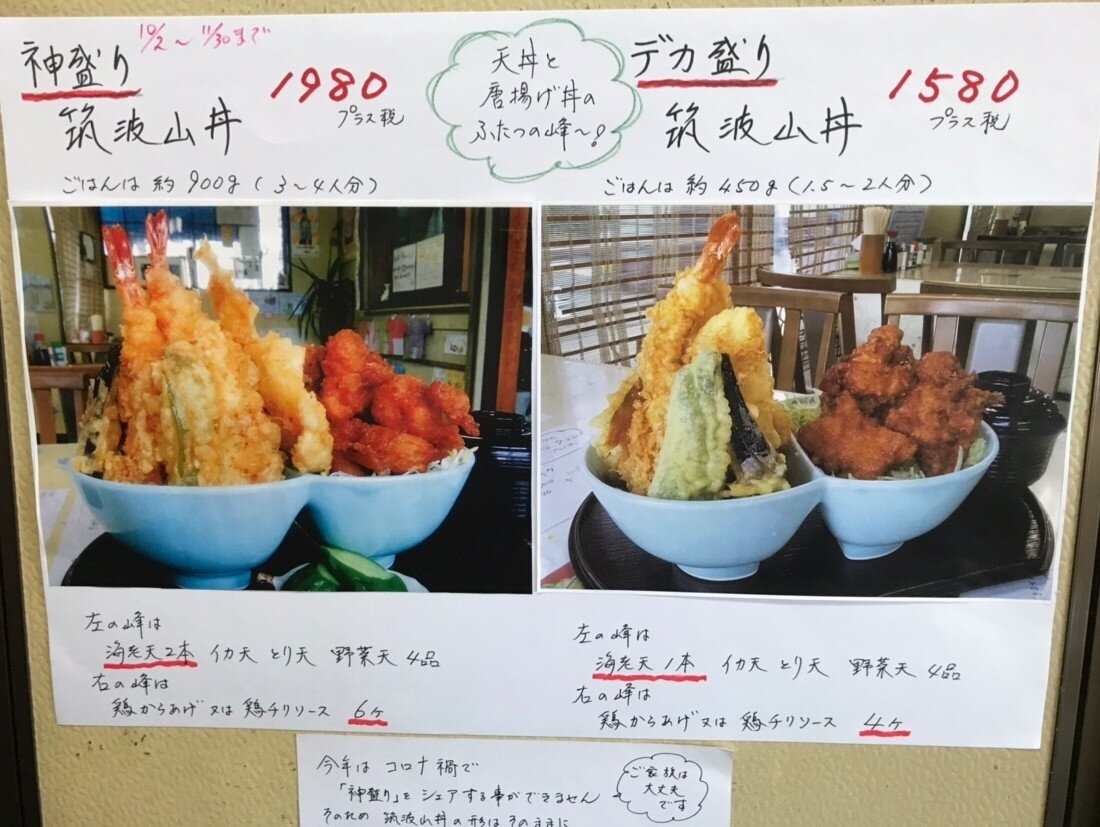 10/2〜11/30まで
神盛り
筑波山丼
1980
プラス税
ごはんは 約900g(3〜4人分)
天丼と
唐揚げ丼の
ふたつの峰〜!
デカ盛り
筑波山丼
1580
プラス税
ごはんは 約450g(1.5〜2人分)
左の峰は
海老天2本 イカ天 とり天 野菜天4品
右の峰は
鶏からあげ又は鶏チリソース 6ヶ
左の峰は
海老天1本 イカ天 とり天 野菜天4品
右の峰は
鶏からあげ又は鶏チリソース 4ヶ
今年は コロナ禍で
「神盛り」を シェアする事ができません
そのため 筑波山丼の形はそのままに
ご家族は
大丈夫
です